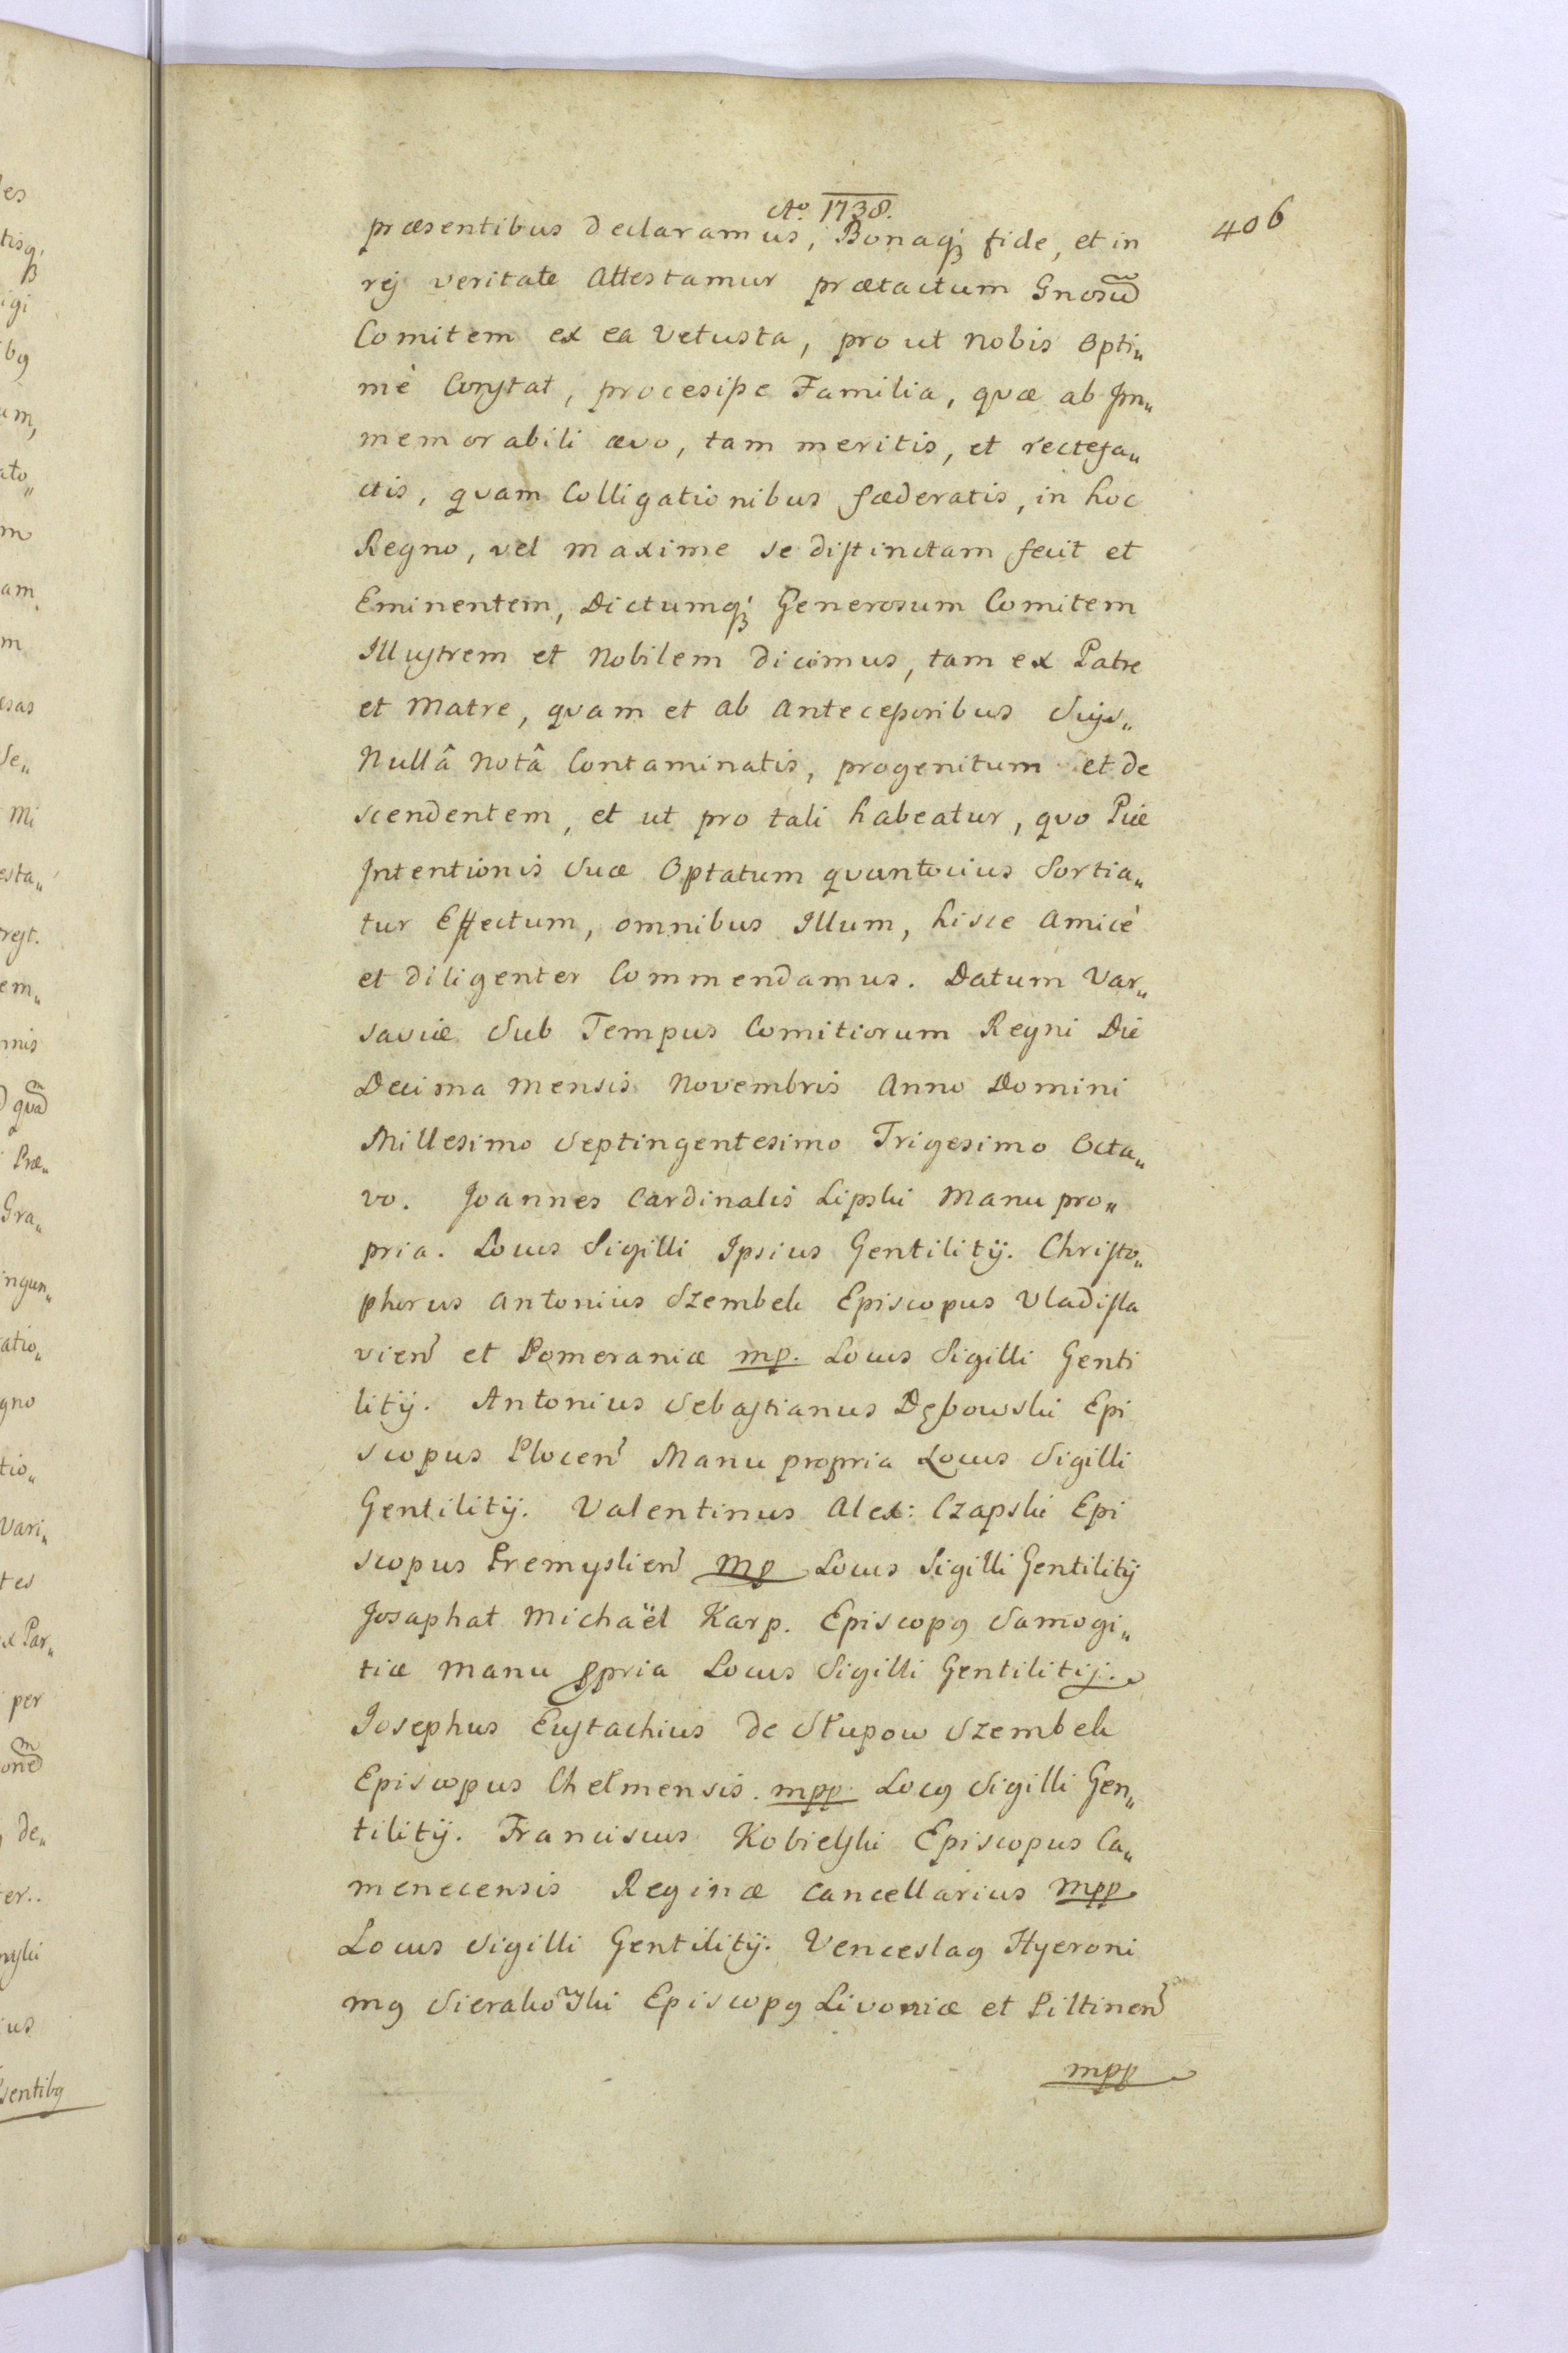 Aō. 1738.
406
præsentibus declaramus, Bonaq́ꝫ fide, et in
rej veritate Attestamur prætactum Gnosum̃
Comitem ex ea Vetusta, pro ut Nobis Opti„
mè Constat, procesisse Familia, quæ ab Im„
memorabili ævo, tam meritis, et rectefa„
ctis, quam Colligationibus fæderatis, in hoc
Regno, vel maxime se distinctam fecit et
Eminentem, Dictumq́ꝫ Generosum Comitem
Illustrem et Nobilem dicimus, tam ex Patre
et Matre, quam et ab Antecessoribus Suis„
Nullâ Notâ Contaminatis, progenitum et de
scendentem, et ut pro tali habeatur, quo Piæ
Intentionis Suæ Optatum quantocius Sortia„
tur Effectum, omnibus Illum, hisce Amicè
et diligenter Commendamus. Datum Var„
saviæ Sub Tempus Comitiorum Regni Die
Decima Mensis Novembris Anno Domini
Millesimo Septingentesimo Trigesimo Octa„
vo. Joannes Cardinalis Lipski Manu pro„
pria. Locus Sigilli Ipsius Gentilitij. Christo„
phorus Antonius Szembek Episcopus Vladisla
vien̄ et Pomeraniæ mp. Locus Sigilli Genti
litij. Antonius Sebastianus Dębowski Epi
scopus Plocen̄ Manu propria Locus Sigilli
Gentilitij. Valentinus Alex: Czapski Epi
scopus Premyslien̄ mp Locus Sigilli Gentilitij
Josaphat Michaël Karp. Episcopꝯ Samogi„
tiæ Manu ꝓpria Locus Sigilli Gentilitij.
Josephus Eustachius de Słupow Szembek
Episcopus Chełmensis. mpp. Locꝯ Sigilli Gen„
tilitij. Franciscus Kobielski Episcopus Ca„
menecensis Reginæ Cancellarius mpp
Locus Sigilli Gentilitij. Venceslaꝯ Hyeroni
mꝯ Sierakowski Episcopꝯ Livoniæ et Piltinen̄
mpp